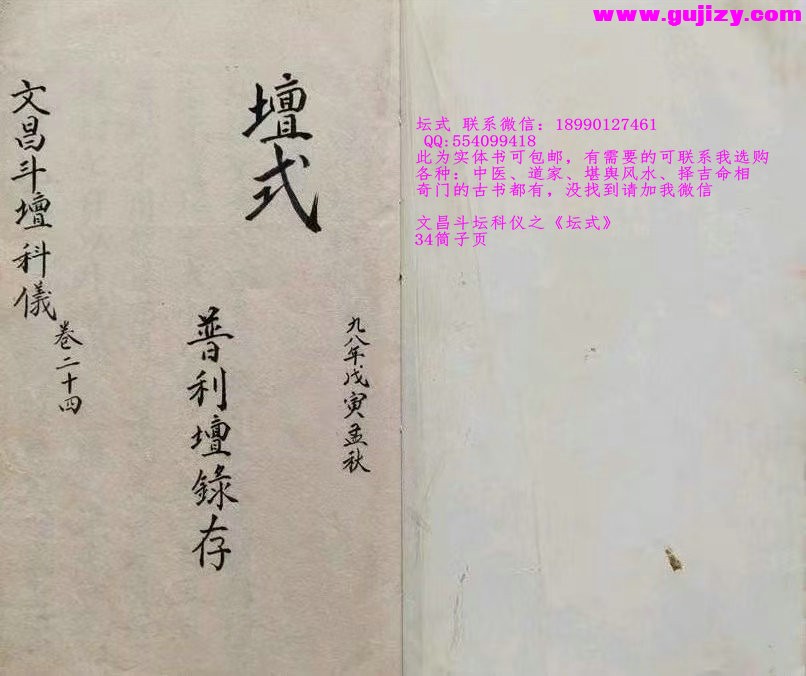 www.gujizy.com
九八年戊寅孟秋
壇式
普利壇錄存
文昌斗壇科儀
卷二十四
坛式 联系微信：18990127461
QQ:554099418
此为实体书可包邮，有需要的可联系我选购
各种：中医、道家、堪舆风水、择吉命相
奇门的古书都有，没找到请加我微信
文昌斗坛科仪之《坛式》
34筒子页